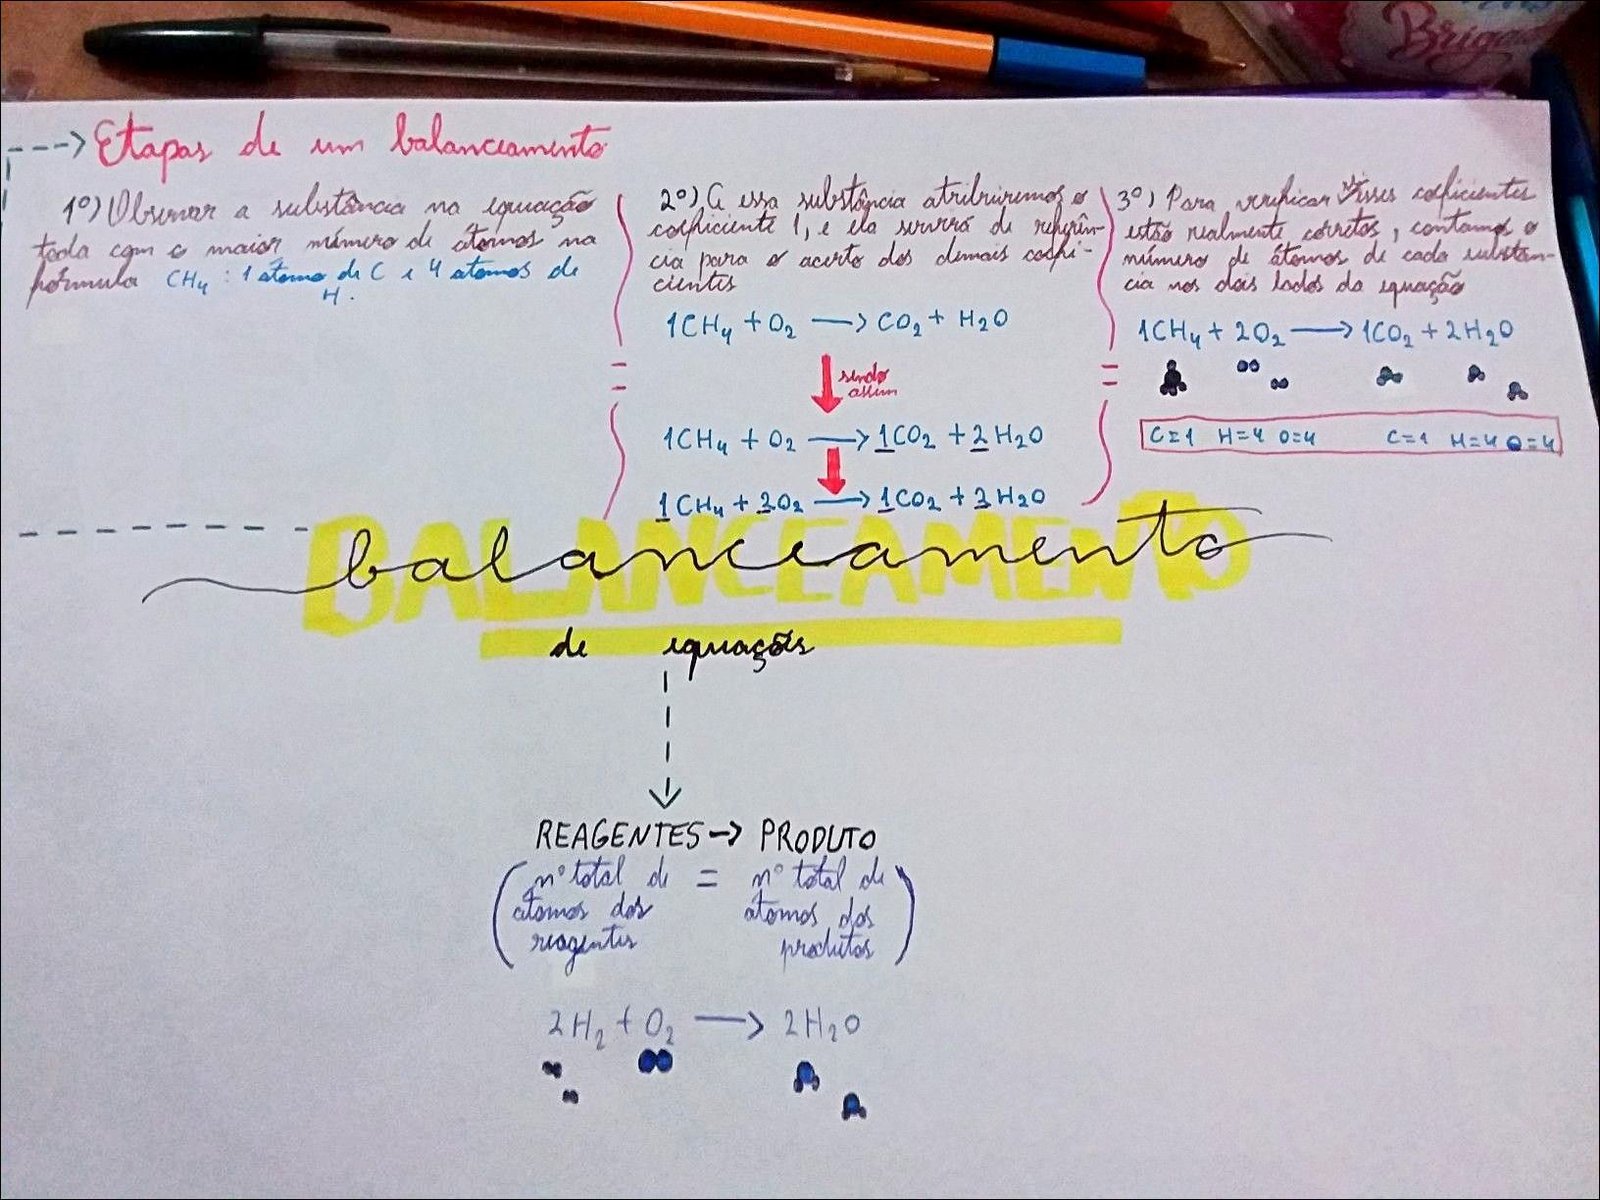 Brigad
Etapas de um balanceamento
1º) Observar a substância na equação
toda com o maior número de átomos na
fórmula CH4 : 1 átomo de C e 4 átomos de
H.
2º) A essa substância atribuiremos o
coeficiente 1, e ela servirá de referên-
cia para o acerto dos demais coefi-
cientes
1CH4 + O2 → CO2 + H2O
sendo
assim
1CH4 + O2 → 1CO2 + 2H2O
1CH4 + 2O2 → 1CO2 + 2H2O
3º) Para verificar se esses coeficientes
estão realmente corretos, contamos o
número de átomos de cada substân-
cia nos dois lados da equação
1CH4 + 2O2 → 1CO2 + 2H2O
C=1 H=4 O=4 C=1 H=4 O=4
BALANCEAMENTO
balanceamento
de equações
REAGENTES → PRODUTO
(nº total de = nº total de
átomos dos átomos dos
reagentes produtos)
2H2 + O2 → 2H2O